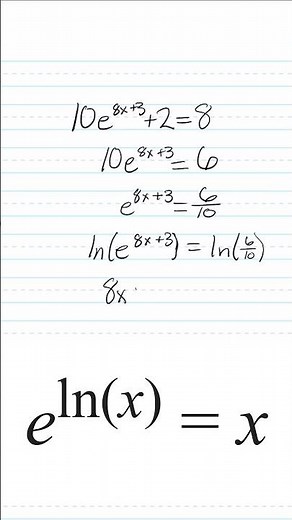 10e^{8x+3}+2=8
10e^{8x+3}=6
e^{8x+3}=\frac{6}{10}
ln(e^{8x+3})=ln(\frac{6}{10})
8x
e^{ln(x)} = x